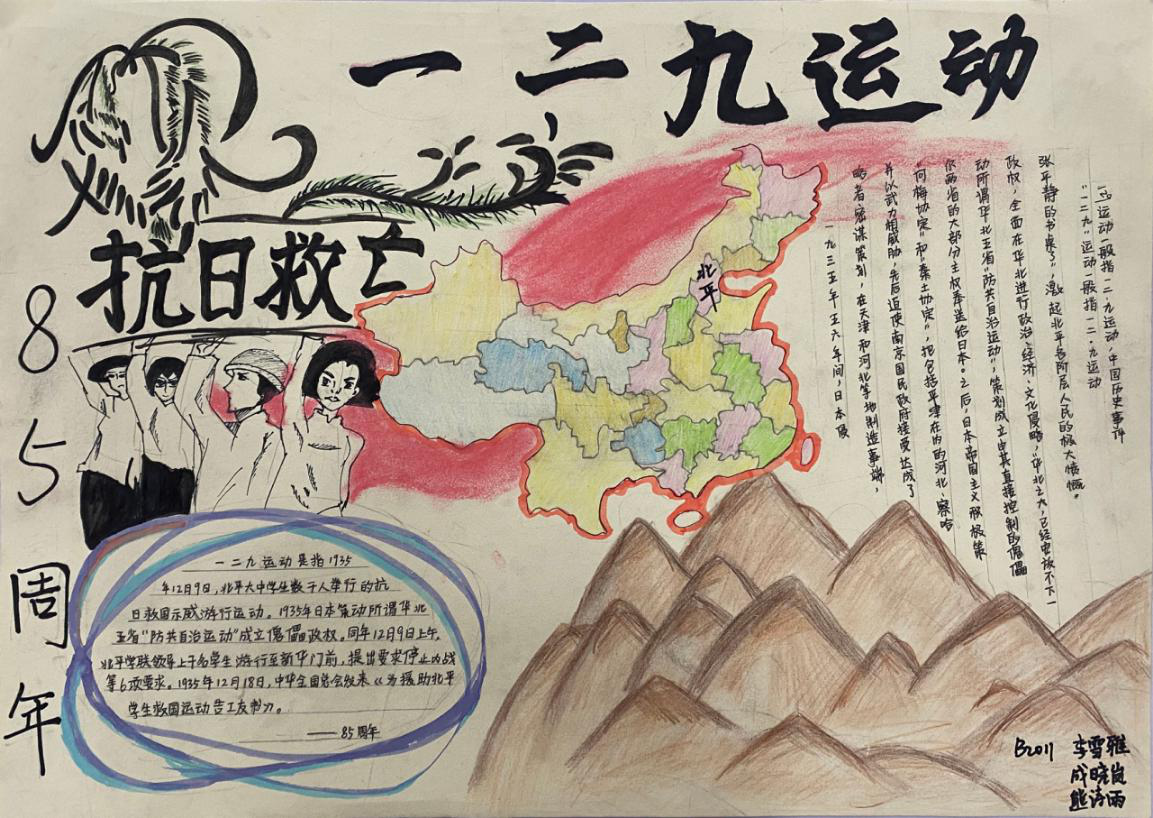 一二九运动
抗日救亡
85周年
北平
一二·九运动一般指一二·九运动，中国历史事件
“一二九”运动一般指一二·九运动
张平静的书桌了”，激起北平各阶层人民的极大愤慨。
政权，全面在华北进行政治、经济、文化侵略，“华北之大，已经安放不下一
动所谓华北五省“防共自治运动”，策划成立由其直接控制的傀儡
尔两省的大部分主权奉送给日本。之后，日本帝国主义积极策
“何梅协定”和“秦土协定”，把包括平津在内的河北、察哈
并以武力相威胁，先后迫使南京国民政府接受达成了
略者密谋策划，在天津和河北等地制造事端，
一九三五年五六年间，日本侵
一二九运动是指1935
年12月9日，北平大中学生数千人举行的抗
日救国示威游行运动。1935年日本策动所谓华北
五省“防共自治运动”成立傀儡政权。同年12月9日上午，
北平学联领导上千名学生游行至新华门前，提出要求停止内战
等6项要求。1935年12月18日，中华全国总会发来《为援助北平
学生救国运动告工友书》。
——85周年
B2011 李雪雅
成晓岚
熊涛雨